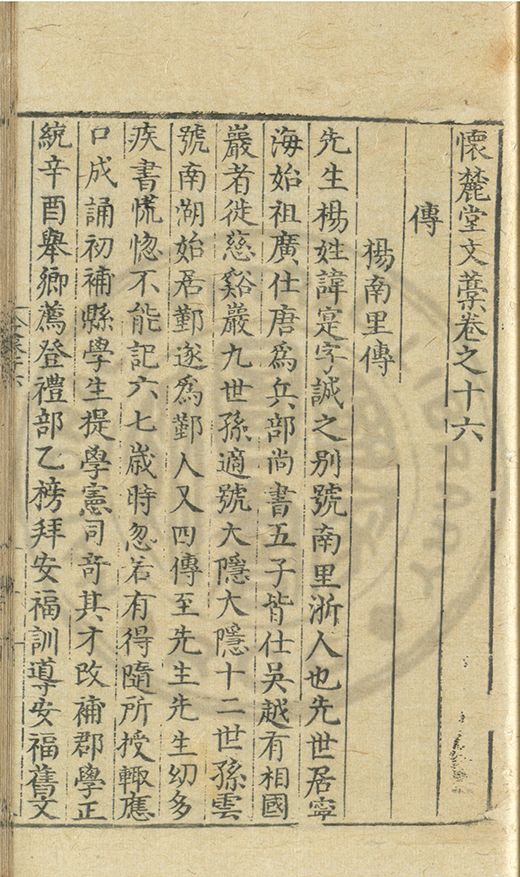 懷麓堂文藁卷之十六
傳
楊南里傳
先生楊姓諱寔字誠之別號南里浙人也先世居寧
海始祖廣仕唐為兵部尚書五子皆仕吳越有相國
巖者徙慈谿巖九世孫適號大隱大隱十二世孫雲
號南湖始居鄞遂為鄞人又四傳至先生先生幼多
疾書慌惚不能記六七歲時忽若有得隨所授輙應
口成誦初補縣學生提學憲司奇其才改補郡學正
統辛酉舉鄉薦登禮部乙榜拜安福訓導安福舊文